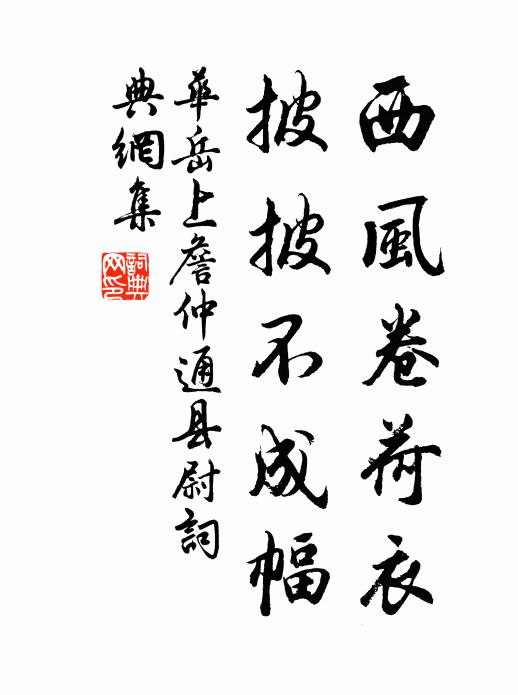 西風卷荷衣
披披不成幅
華岳上詹仲通县尉詞
典網集
詞典网印